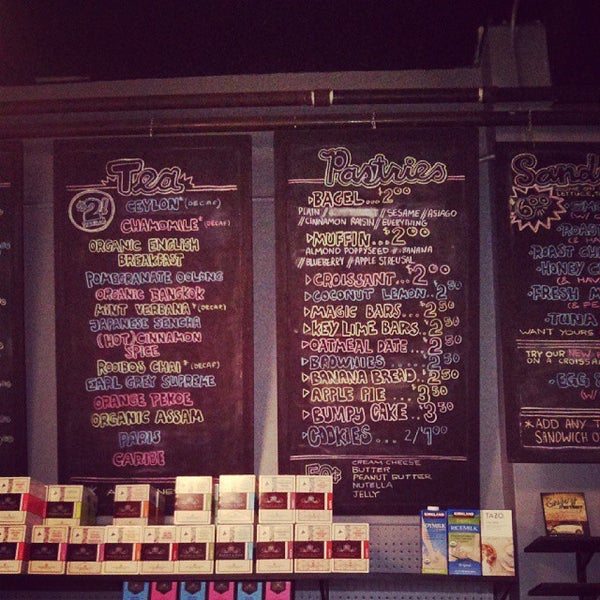 Tea
$2!
CEYLON* (DECAF)
CHAMOMILE* (DECAF)
ORGANIC ENGLISH
BREAKFAST
POMEGRANATE OOLONG
ORGANIC BANGKOK
MINT VERBANA* (DECAF)
JAPANESE SENCHA
(HOT) CINNAMON
SPICE
ROOIBOS CHAI* (DECAF)
EARL GREY SUPREME
ORANGE PEKOE
ORGANIC ASSAM
PARIS
CARIBE
Pastries
BAGEL... $2.00
PLAIN // // SESAME // ASIAGO
// CINNAMON RAISIN // EVERYTHING
MUFFIN... $2.00
ALMOND POPPYSEED // BANANA
// BLUEBERRY // APPLE STREUSAL
CROISSANT... $2.00
COCONUT LEMON.. 2.50
MAGIC BARS.. 2.50
KEY LIME BARS.. 2.50
OATMEAL DATE.. 2.50
BROWNIES... 2.50
BANANA BREAD.. 2.50
APPLE PIE... $3.50
BUMPY CAKE.. $3.50
COOKIES... 2/$1.00
50¢
CREAM CHEESE
BUTTER
PEANUT BUTTER
NUTELLA
JELLY
Sand
$6.00
ROAST
ROAST CHE
HONEY C
(& HAV
FRESH M
TUNA
WANT YOURS
TRY OUR NEW
ON A CROISSA
EGG &
*ADD ANY T
SANDWICH O
KIRKLAND
SOYMILK
KIRKLAND
RICE MILK
TAZO